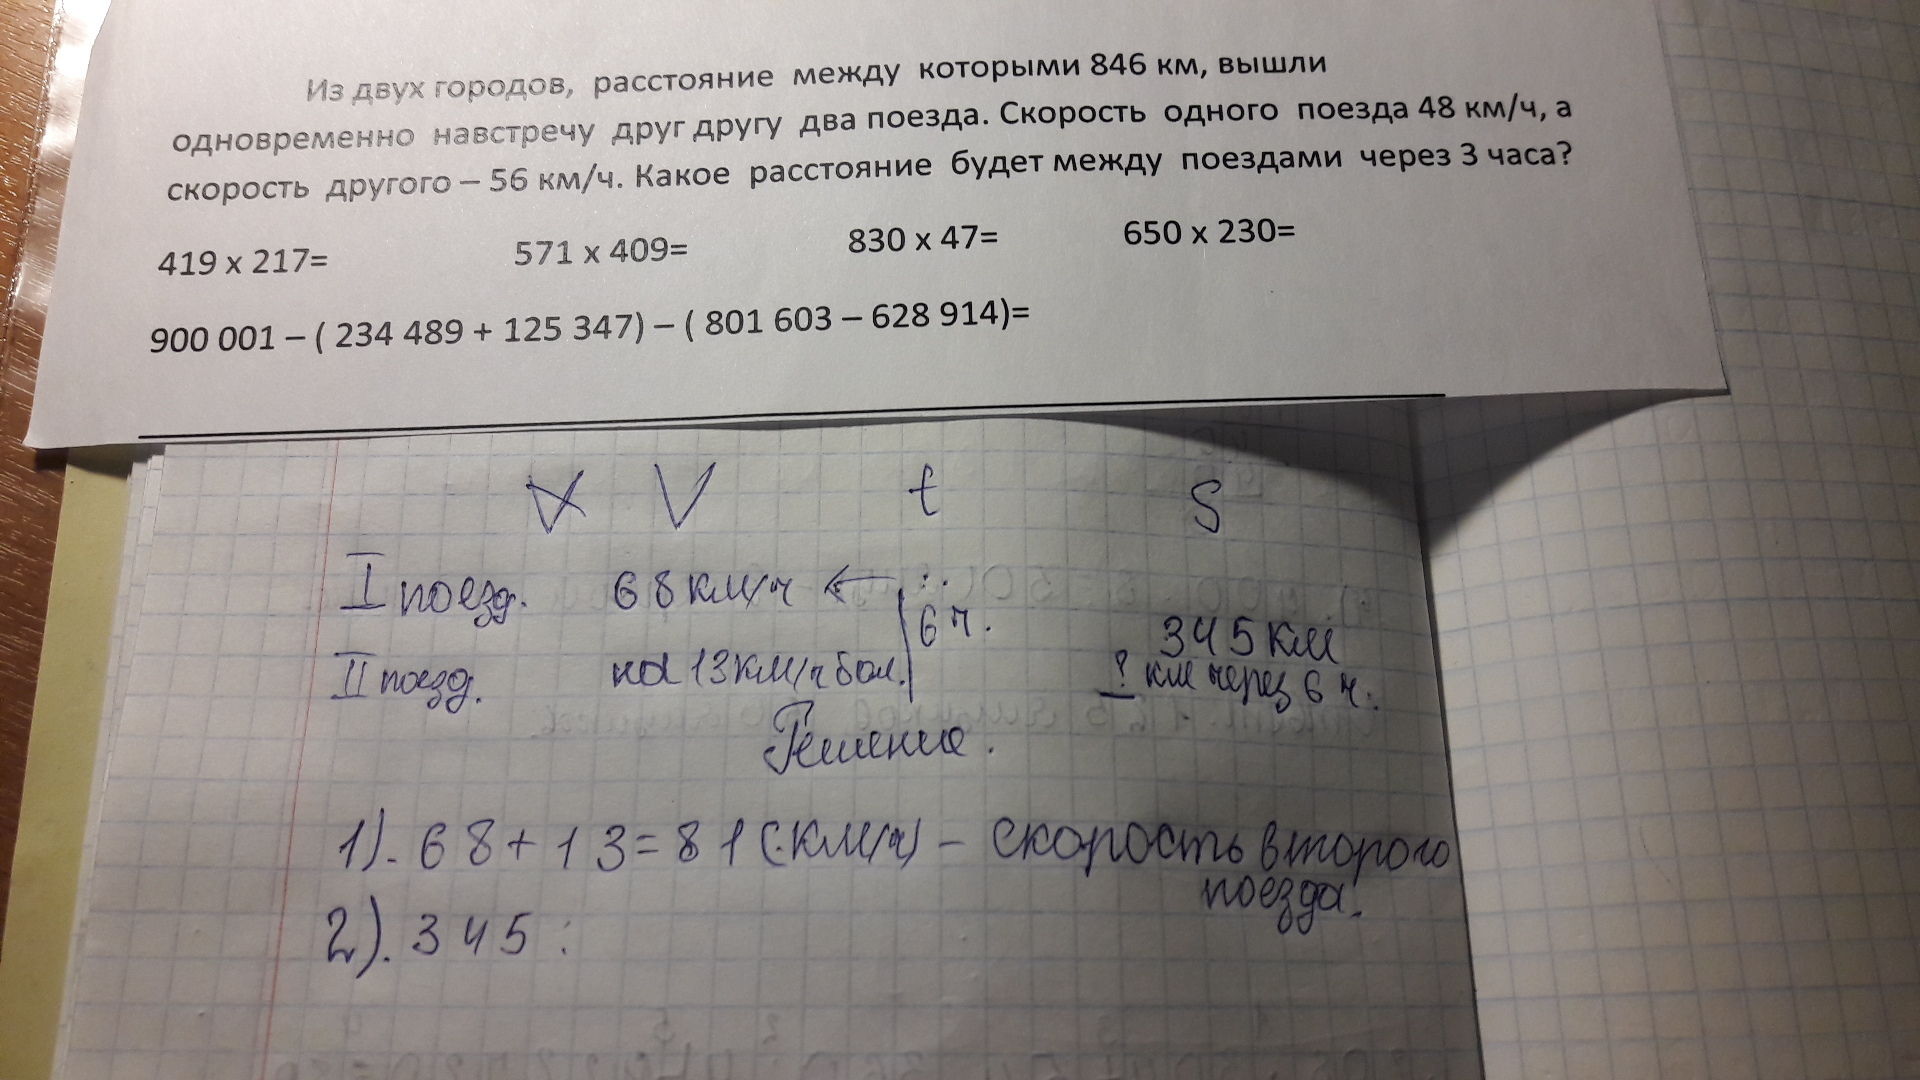 Из двух городов, расстояние между которыми 846 км, вышли
одновременно навстречу друг другу два поезда. Скорость одного поезда 48 км/ч, а
скорость другого – 56 км/ч. Какое расстояние будет между поездами через 3 часа?
419 х 217= 571 х 409= 830 х 47= 650 х 230=
900 001 – ( 234 489 + 125 347) – ( 801 603 – 628 914)=
V t S
I поезд. 68 км/ч ←
6 ч.
345 км
II поезд. на 13 км/ч бол. ? км через 6 ч.
Решение.
1). 68+13=81 (км/ч) – скорость второго
поезда.
2). 345 :